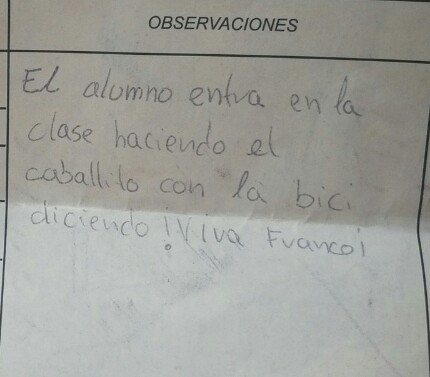 OBSERVACIONES
El alumno entra en la
clase haciendo el
caballito con la bici
diciendo !Viva Franco¡